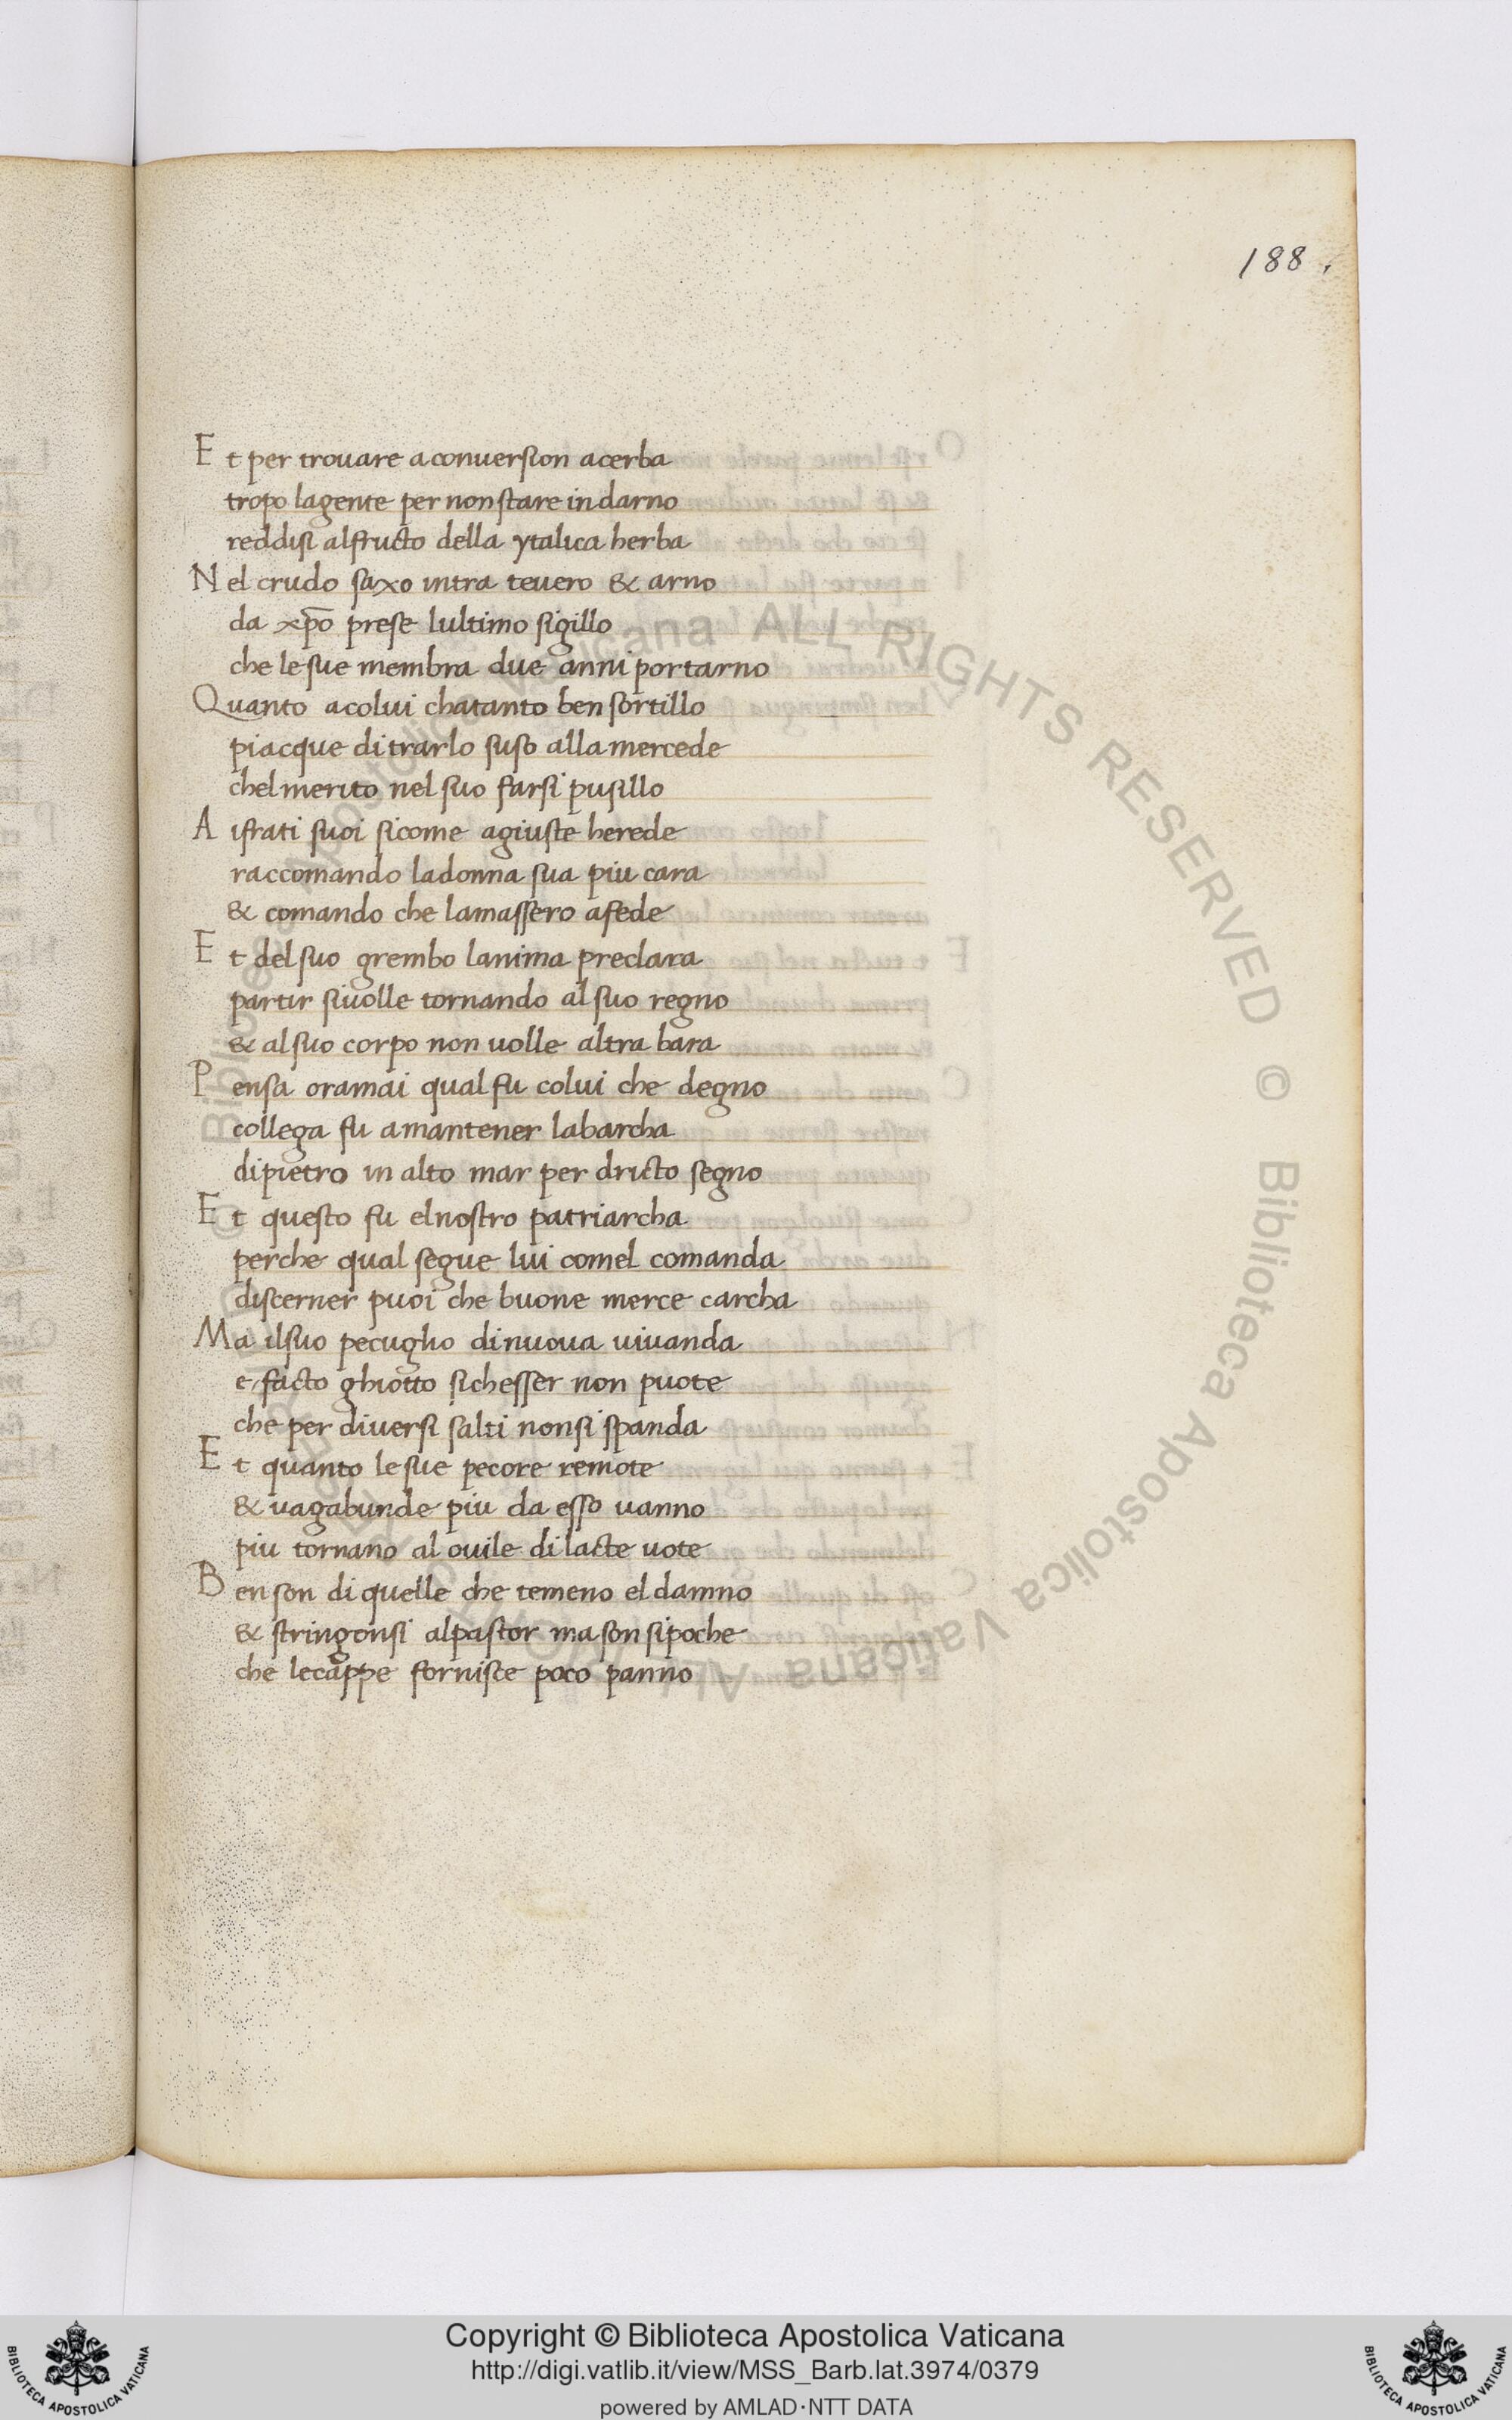 188.
Et per trouare aconuersion acerba
tropo lagente per non stare indarno
reddisi alfructo della ytalica herba
Nel crudo saxo intra teuero & arno
da xp̄o prese lultimo sigillo
che lesue membra due anni portarno
Quanto acolui chatanto ben sortillo
piacque ditrarlo suso allamercede
chelmerito nel suo farsi pusillo
A ifrati suoi sicome agiuste herede
raccomando ladonna sua piu cara
& comando che lamassero afede
Et delsuo grembo lanima preclara
partir siuolle tornando alsuo regno
& alsuo corpo non uolle altra bara
Pensa oramai qual fu colui che degno
collega fu amantener labarcha
dipietro in alto mar per dricto segno
Et questo fu elnostro patriarcha
perche qual segue lui comel comanda
discerner puoi che buone merce carcha
Ma ilsuo pecuglio dinuoua uiuanda
e facto ghiotto sichesser non puote
che per diuersi salti nonsi spanda
Et quanto lesue pecore remote
& uagabunde piu da esso uanno
piu tornano al ouile di lacte uote
Ben son di quelle che temeno el damno
& stringonsi alpastor ma son sipoche
che lecappe fornisce poco panno
© Biblioteca Apostolica Vaticana ALL RIGHTS RESERVED © Biblioteca Apostolica Vaticana ALL RIGHTS RESERVED
Copyright © Biblioteca Apostolica Vaticana
http://digi.vatlib.it/view/MSS_Barb.lat.3974/0379
powered by AMLAD·NTT DATA
BIBLIOTECA APOSTOLICA VATICANA
BIBLIOTECA APOSTOLICA VATICANA